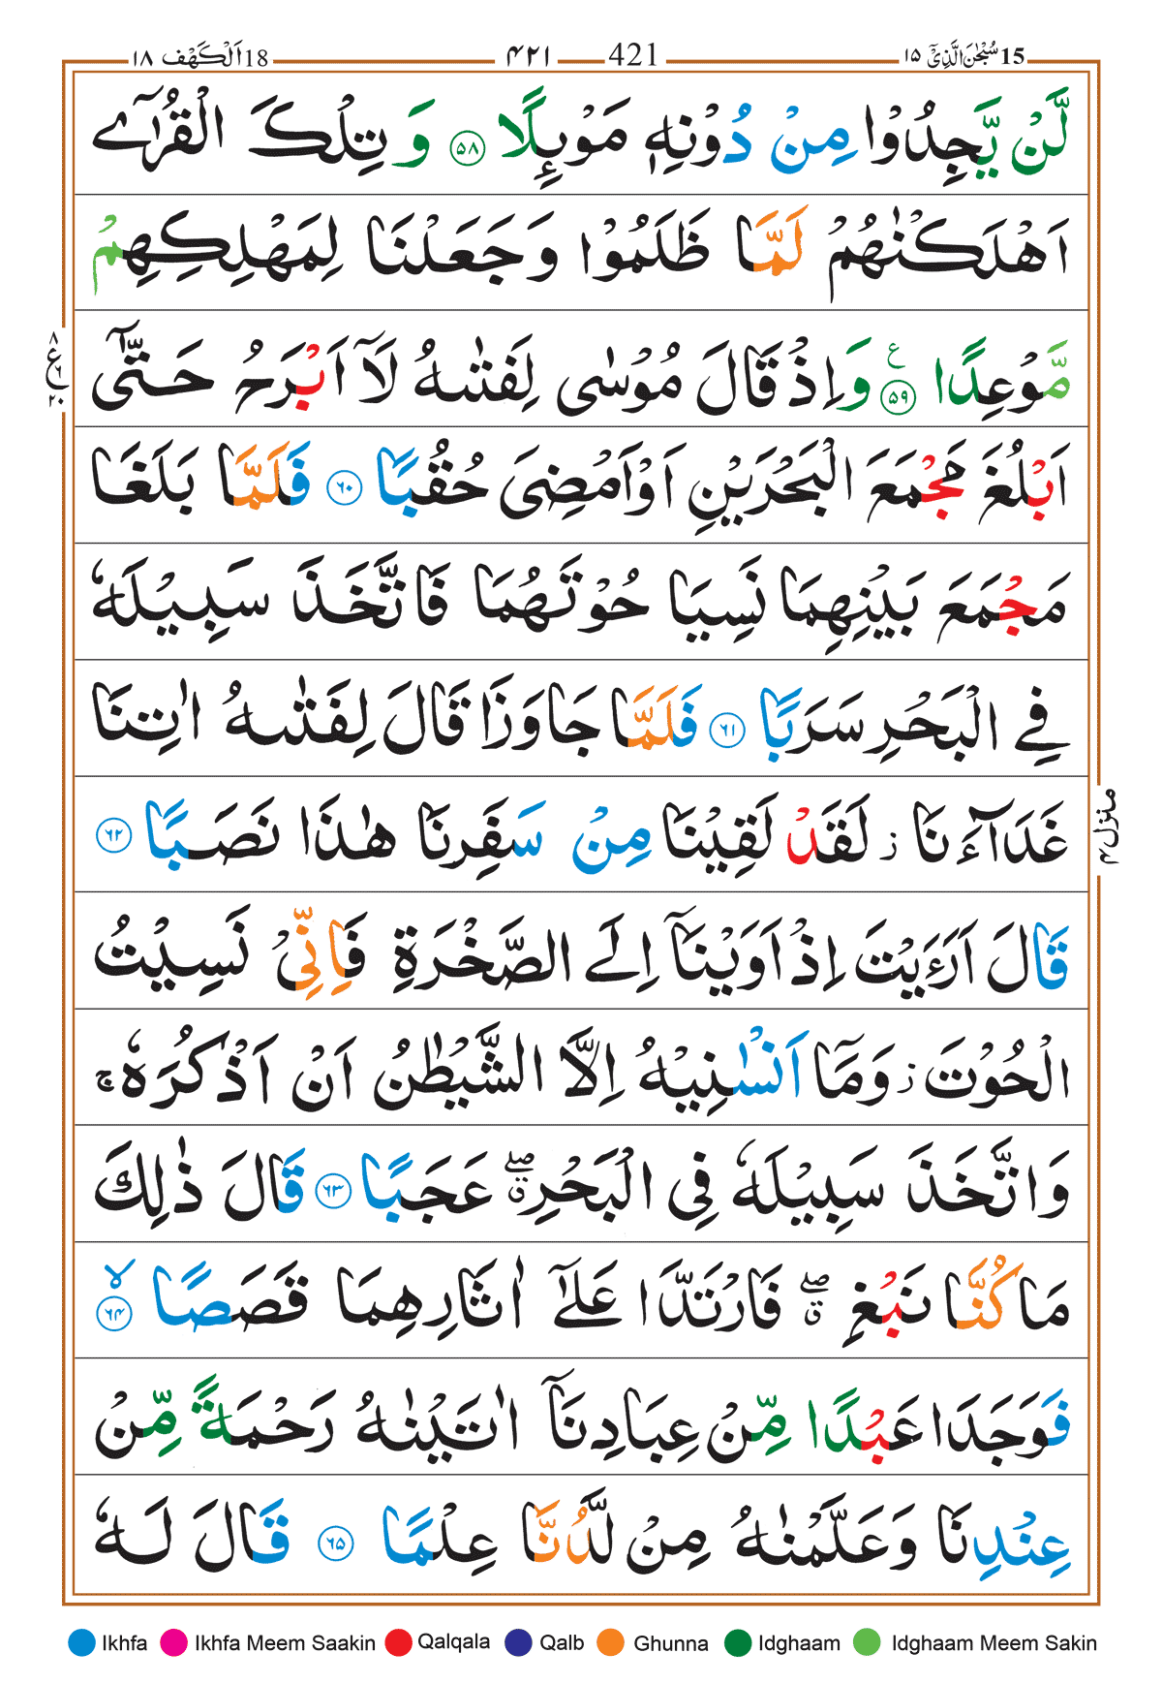 15 سُبْحٰنَ الَّذِیْۤ ۱۵
421 ۴۲۱
18 اَلْكَهْف ۱۸
لَّنْ یَّجِدُوْا مِنْ دُوْنِهٖ مَوْىِٕلًا ۵۸ وَ تِلْكَ الْقُرٰۤى
اَهْلَكْنٰهُمْ لَمَّا ظَلَمُوْا وَ جَعَلْنَا لِمَهْلِكِهِمْ
مَّوْعِدًا ۵۹ ع وَ اِذْ قَالَ مُوْسٰى لِفَتٰىهُ لَاۤ اَبْرَحُ حَتّٰۤى
اَبْلُغَ مَجْمَعَ الْبَحْرَیْنِ اَوْ اَمْضِیَ حُقُبًا ۶۰ فَلَمَّا بَلَغَا
مَجْمَعَ بَیْنِهِمَا نَسِیَا حُوْتَهُمَا فَاتَّخَذَ سَبِیْلَهٗ
فِی الْبَحْرِ سَرَبًا ۶۱ فَلَمَّا جَاوَزَا قَالَ لِفَتٰىهُ اٰتِنَا
غَدَآءَنَا ز لَقَدْ لَقِیْنَا مِنْ سَفَرِنَا هٰذَا نَصَبًا ۶۲
قَالَ اَرَءَیْتَ اِذْ اَوَیْنَاۤ اِلَى الصَّخْرَةِ فَاِنِّیْ نَسِیْتُ
الْحُوْتَ ز وَ مَاۤ اَنْسٰىنِیْهُ اِلَّا الشَّیْطٰنُ اَنْ اَذْكُرَهٗ ج
وَ اتَّخَذَ سَبِیْلَهٗ فِی الْبَحْرِ ق صلے عَجَبًا ۶۳ قَالَ ذٰلِكَ
مَا كُنَّا نَبْغِ ق صلے فَارْتَدَّا عَلٰۤى اٰثَارِهِمَا قَصَصًا ۶۴ لا
فَوَجَدَا عَبْدًا مِّنْ عِبَادِنَاۤ اٰتَیْنٰهُ رَحْمَةً مِّنْ
عِنْدِنَا وَ عَلَّمْنٰهُ مِنْ لَّدُنَّا عِلْمًا ۶۵ قَالَ لَهٗ
۸ ع ۶ ۲۰
منزل ۴
Ikhfa Ikhfa Meem Saakin Qalqala Qalb Ghunna Idghaam Idghaam Meem Sakin